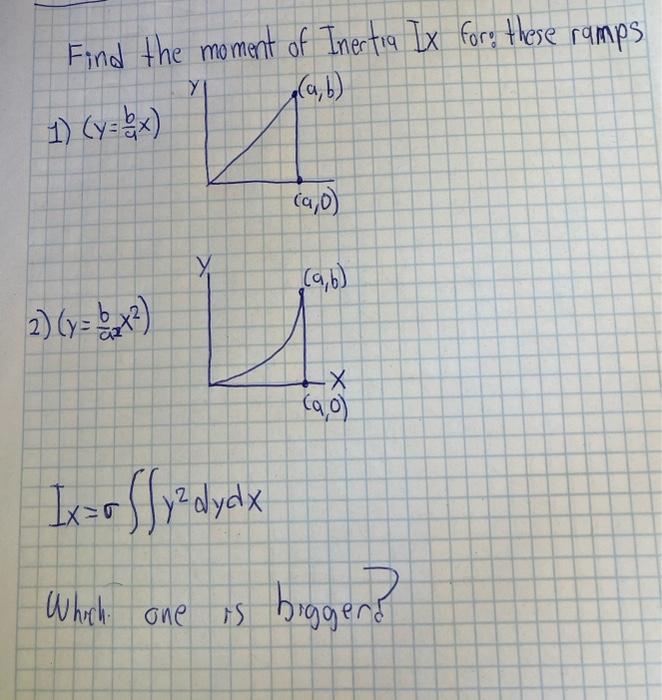 Find the moment of Inertia Ix for: these ramps
Y
(a,b)
1) (y=b/a x)
(a,0)
Y
(a,b)
2) (y=b/a² x²)
X
(a,0)
Ix=σ∫∫y²dydx
Which one is bigger?